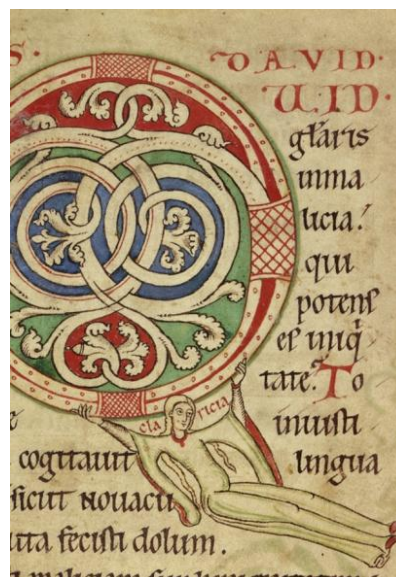 S. DAVID.
UID.
gl̃aris
inma
licia!
qui
potens
es iniq̃
tate. To
claricia
iniusti
cogitauit lingua
sicut nouacu
uta fecisti dolum.